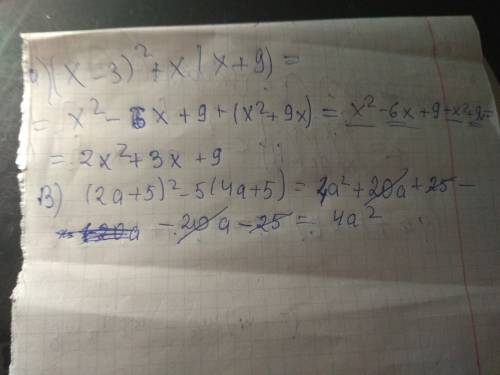 ) (x-3)² + x(x+9) =
= x² - 6x + 9 + (x² + 9x) = x² - 6x + 9 + x² + 9x =
= 2x² + 3x + 9
В) (2a+5)² - 5(4a+5) = 4a² + 20a + 25 -
- 20a - 25 = 4a²